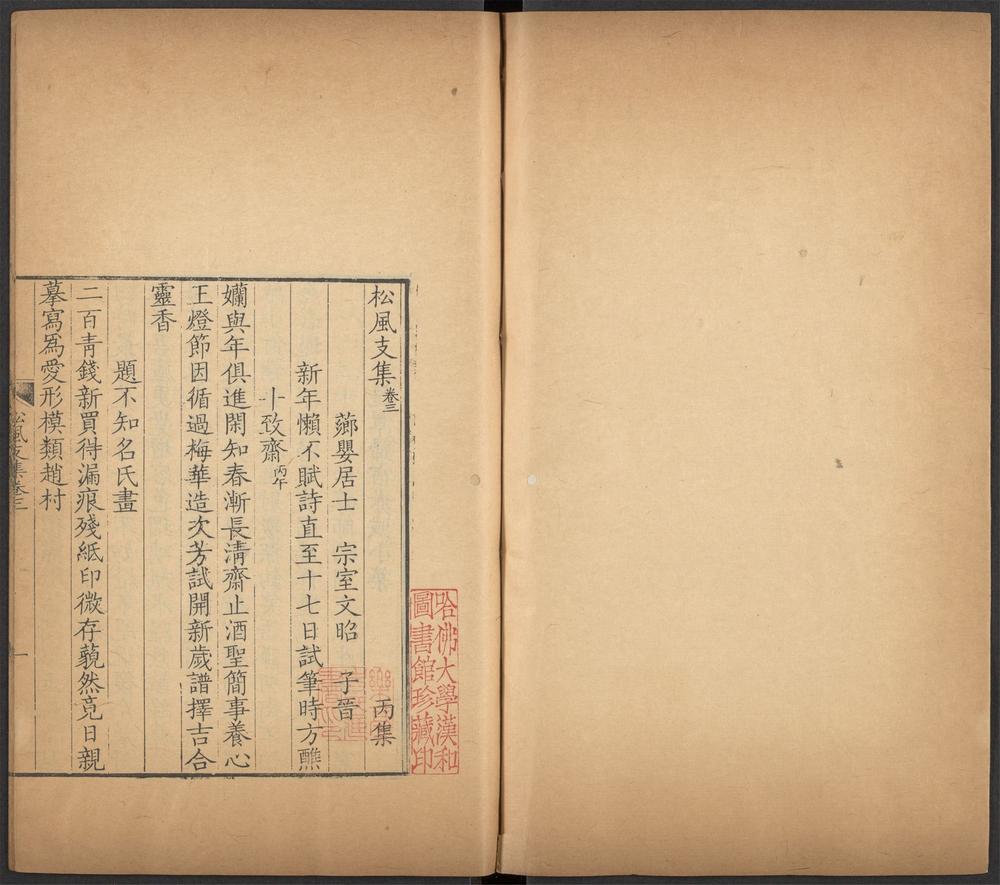 松風支集卷三 丙集
薌嬰居士 宗室文昭 子晉
新年懶不賦詩直至十七日試筆時方醮
十致齋丙午
嬾與年俱進閑知春漸長清齋止酒聖簡事養心
王燈節因循過梅華造次芳試開新歲譜擇吉合
靈香
題不知名氏畫
二百青錢新買得漏痕殘紙印微存藐然竟日親
摹寫爲愛形模類趙村
松風支集卷三
一
哈佛大學漢和
圖書館珍藏印